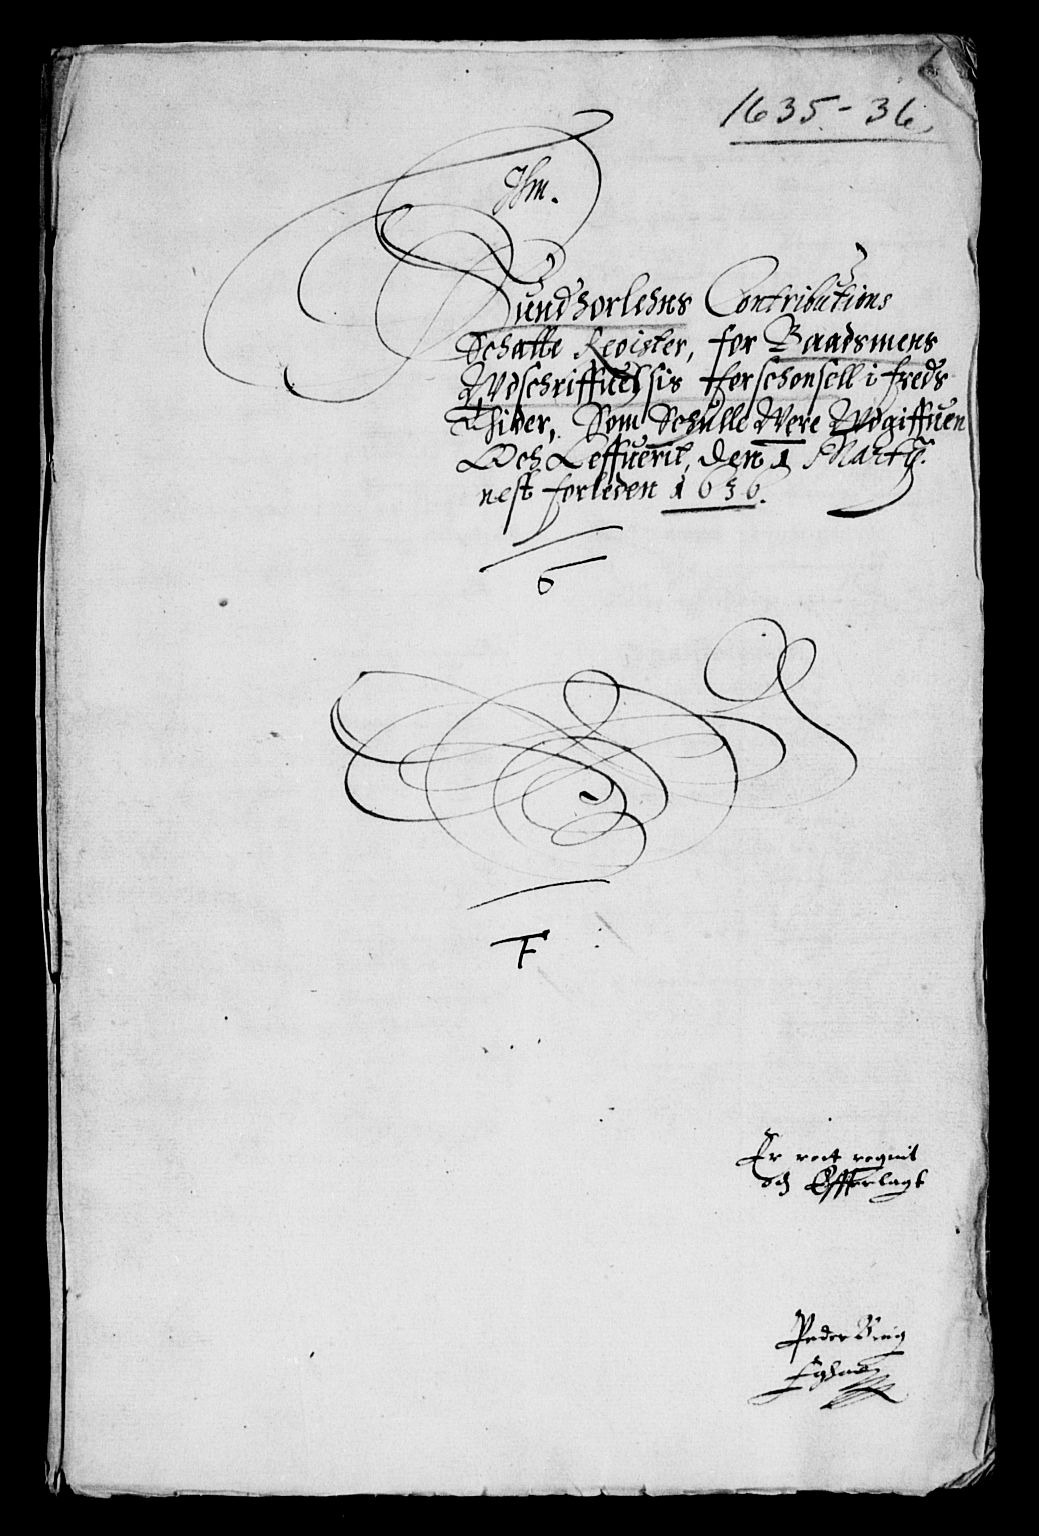 1635-36
Jhm.
Sundhorlehns Contributions
Schatte Register, for Baadsmens
Wdschriffuelssis Perschonsell i freds
Thider, Som Schulle Were Wdgiffuen
Och Leffuerit, den 1 Martij.
nest forleden 1636.
6
F
Er rect regnit
och Efferlagt
Peder